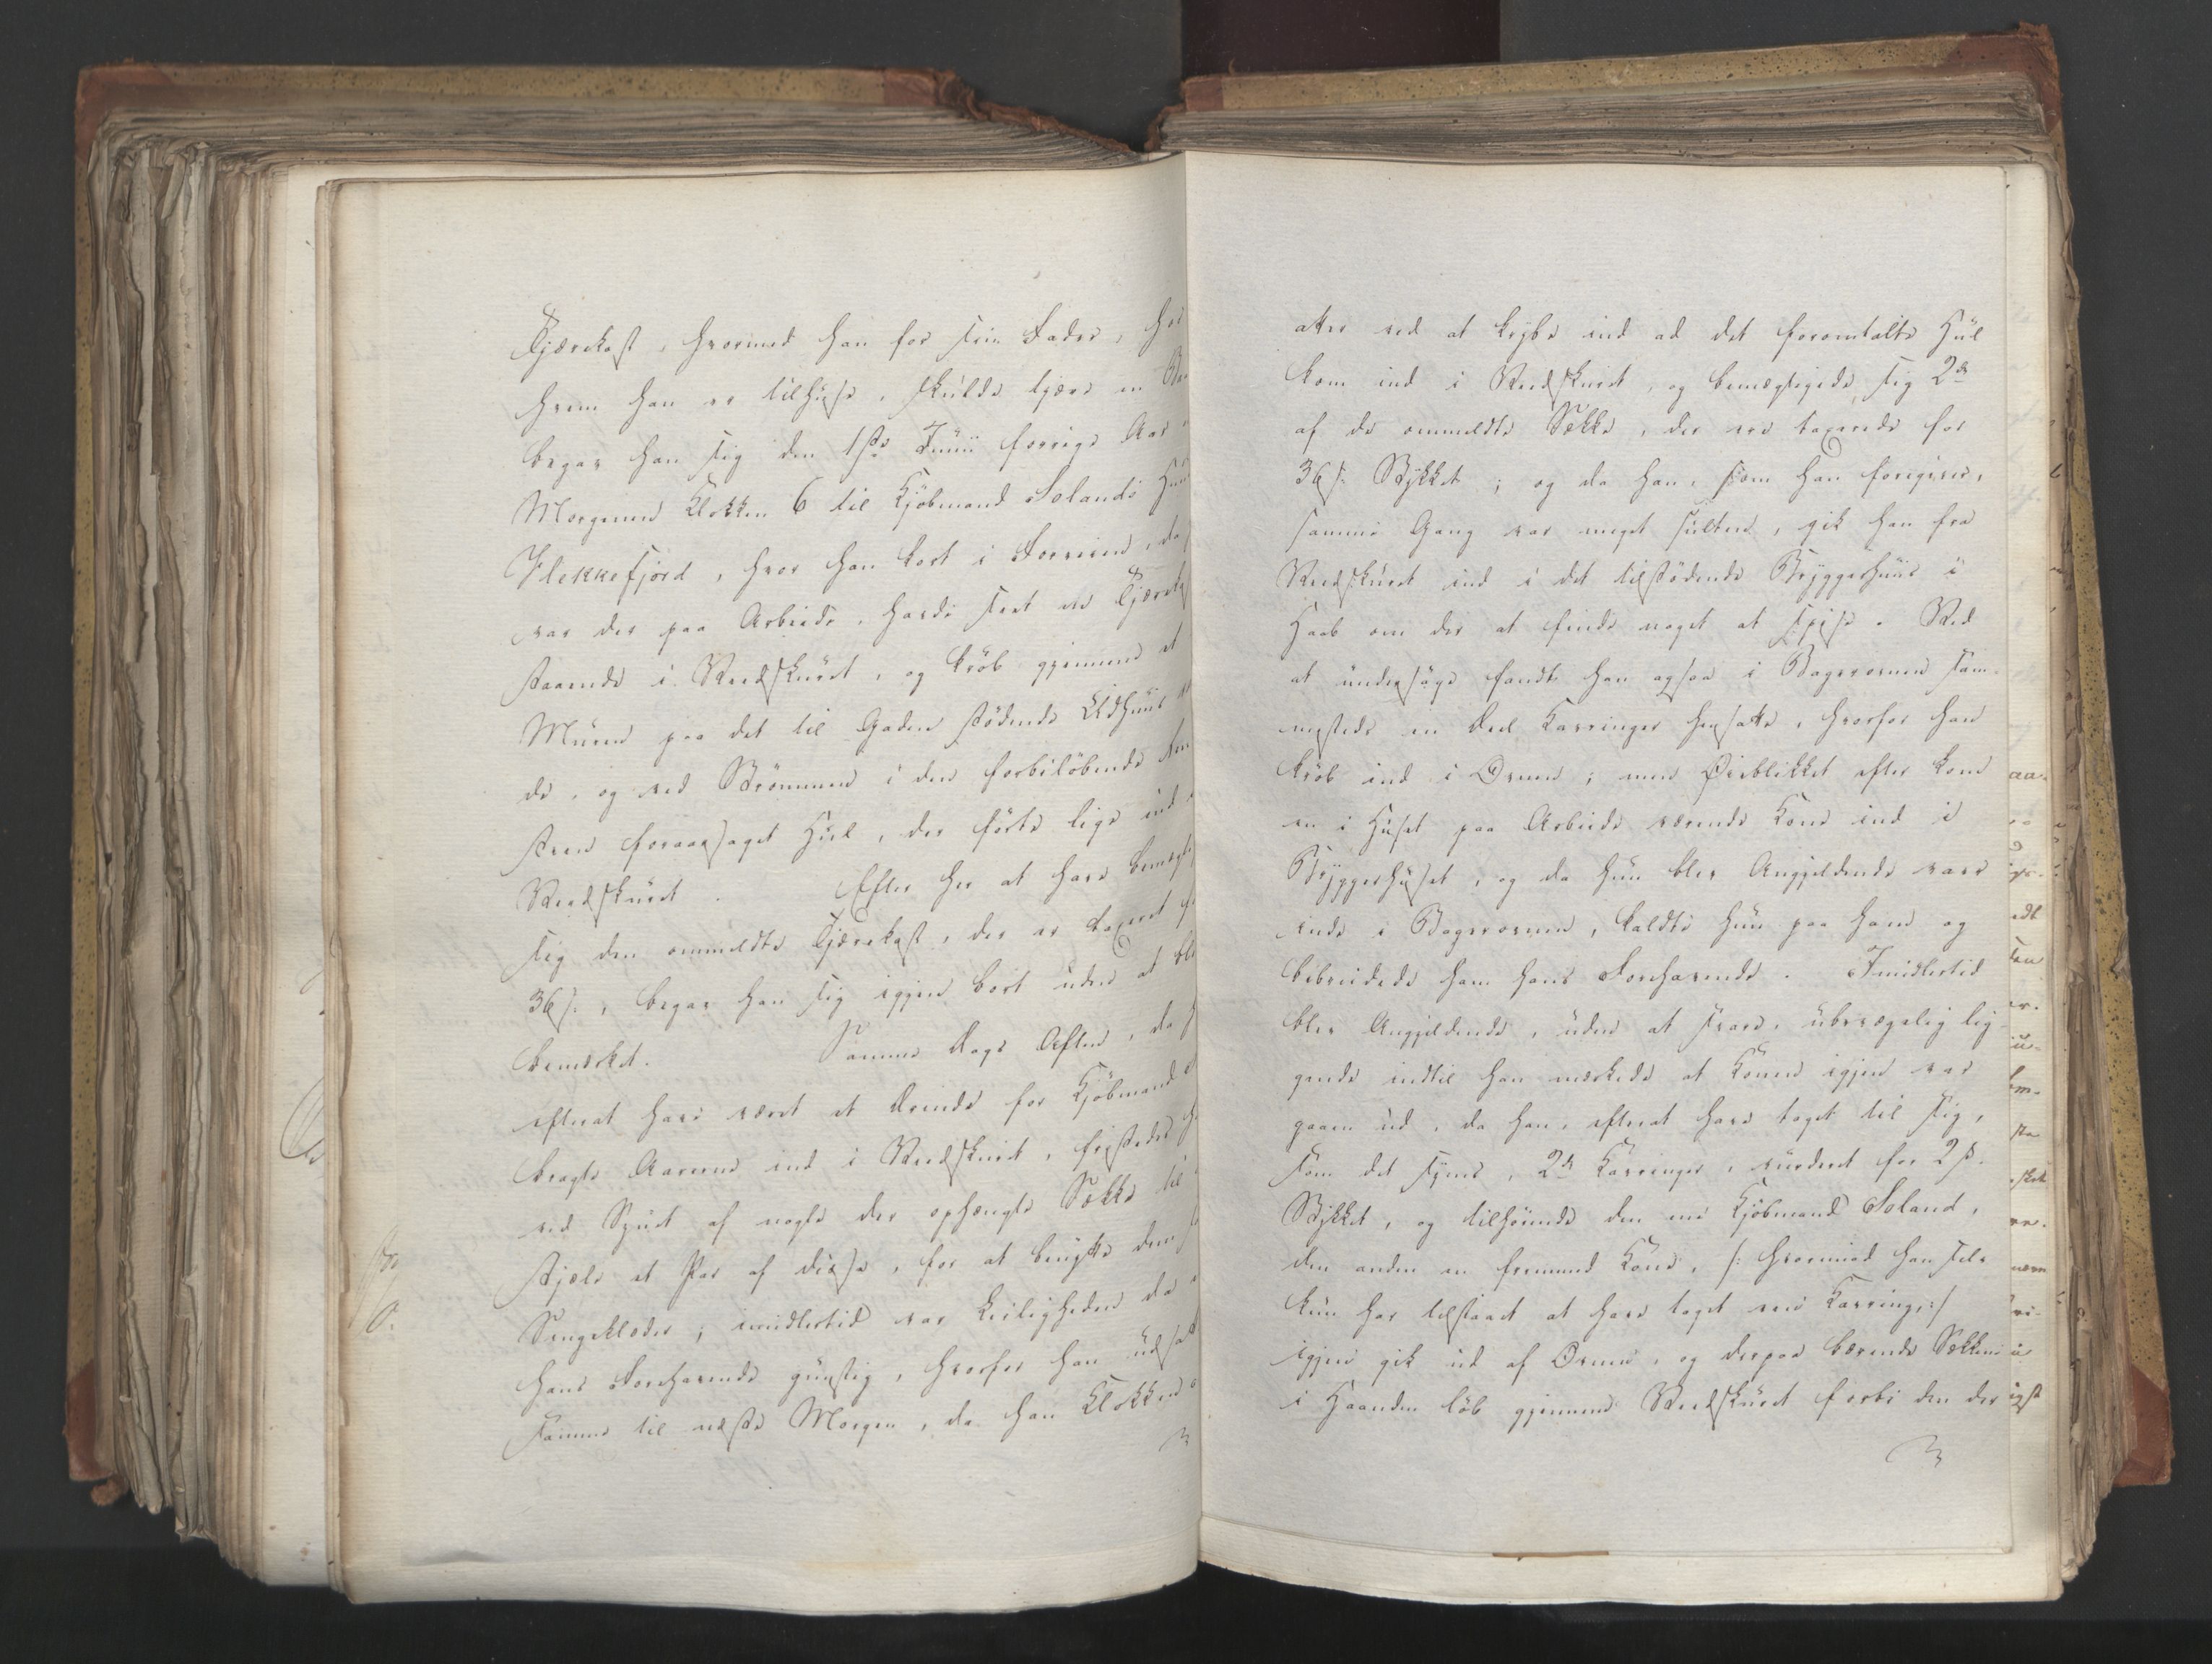 Tjærekost, hvormed han for sin Fader, hos
hvem han er tilhuse, skulde tjære en
begav han sig den 1ste Junii forrige Aar
Morgenen Klokken 6 til Kjøbmand Solands
Flekkefjord, hvor han kort i Forveien, da
var der paa Arbeide, havde seet en
staaende i Vedskuret, og krøb gjennem et
Muren paa det til Gaden stødende Ildhuus
de, og ved Strømmen i den forbiløbende
foraarsaget Hul, der førte lige ind
Vedskuret. Efter her at have
sig den ommeldte Tjærekost, der er taxeret
36 ſ:, begav han sig igjen bort uden at
bemærket. Samme Dags Aften, da
efterat have været et Ærinde for Kjøbmand
bragte Aarerne ind i Vedskuret, fristedes
ved Synet af nogle der ophængte Sække til
stjæle et Par af disse, for at benytte dem
Sengeklæder; imidlertid var Leiligheden da
hans Forehavende gunstig, hvorfor han
samme til næste Morgen, da han Klokken
atter ved at krybe ind ad det foromtalte Hul
kom ind i Vedskuret, og bemægtigede sig 2de
af de ommeldte Sække, der ere taxerede for
36 ſ: Stykket; og da han, som han foregiver,
samme Gang var meget sulten, gik han fra
Vedskuret ind i det tilstødende Bryggerhuus i
Haab om der at finde noget at spise. Ved
at undersøge fandt han ogsaa i Bagerovnen sam-
mesteds en Deel Kavringer hensatte, hvorfor han
krøb ind i Ovnen; men Øieblikket efter kom
en i Huset paa Arbeide værende Kone ind i
Bryggerhuset, og da hun blev Angjeldende vaer
inde i Bagerovnen, kaldte hun paa ham og
bebreidede ham hans Forehavende. Imidlertid
blev Angjeldende, uden at svare, ubevægelig lig-
gende indtil han mærkede at Konen igjen var
gaaen ud, da han, efterat have taget til sig,
som det synes, 2de Kavringer, vurderet for 2 ſ.
Stykket, og tilhørende den ene Kjøbmand Soland,
den anden en fremmed Kone, /: hvormed han selv
kun har tilstaaet at have taget een Kavring, :/
igjen gik ud af Ovnen, og derpaa bærende Sækkene
i Haanden løb gjennem Vedskuret forbi den der